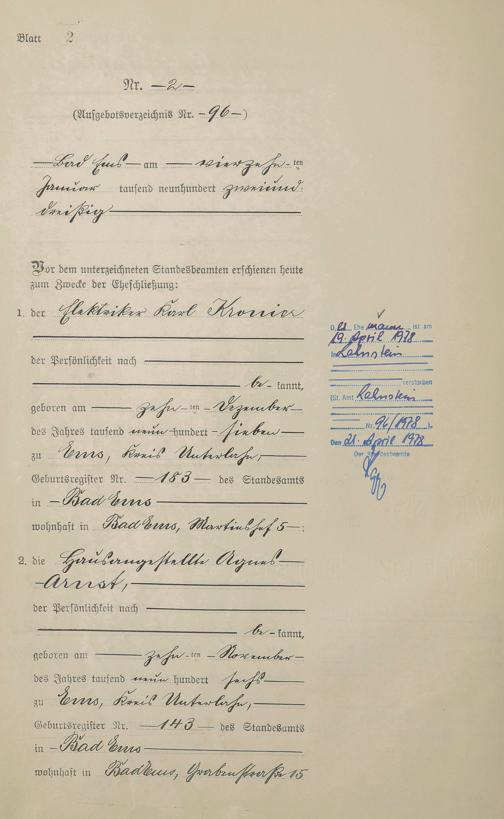 Blatt 2
Nr. —2—
(Aufgebotsverzeichnis Nr. —96—)
—Bad Ems— am — vierzehn-ten
Januar tausend neunhundert zweiund-
dreißig
Vor dem unterzeichneten Standesbeamten erschienen heute
zum Zwecke der Eheschließung:
1. der Elektriker Karl
der Persönlichkeit nach
be-kannt,
geboren am — zehn-ten — Dezember
des Jahres tausend neun hundert — sieben
zu Ems, Kreis Unterlahn,
Geburtsregister Nr. —183— des Standesamts
in — Bad Ems
wohnhaft in Bad Ems, Martinshof 5—;
2. die Hausangestellte Agnes
der Persönlichkeit nach
be-kannt,
geboren am — zehn-ten — November
des Jahres tausend neun hundert sechs
zu Ems, Kreis Unterlahn,
Geburtsregister Nr. —143— des Standesamts
in — Bad Ems
wohnhaft in Bad Ems, Grabenstraße 15
D. Ehemann ist am
19. April 1978
in Lahnstein
verstorben
(St. Amt Lahnstein
Nr. 96/1978).
Den 21. April 1978
Der Standesbeamte